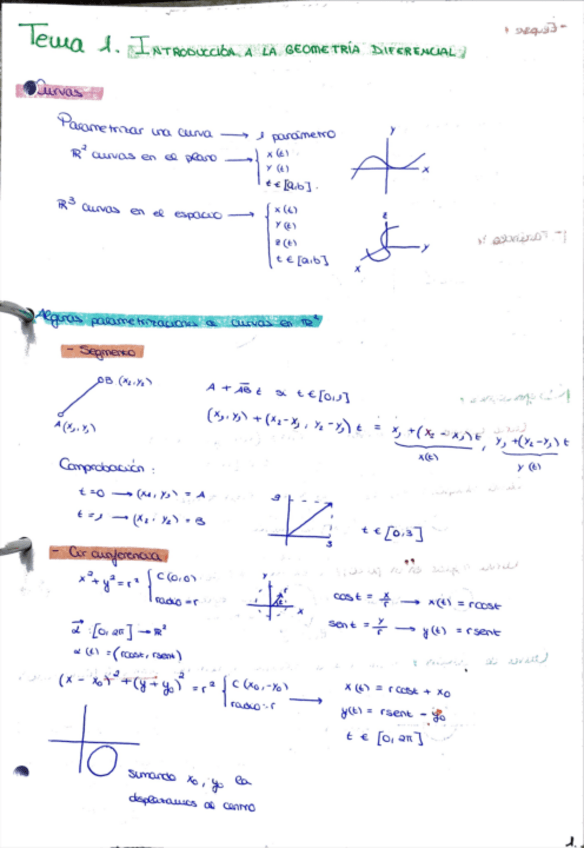 Tema 1. INTRODUCCIÓN A LA GEOMETRÍA DIFERENCIAL
Curvas
Parametrizar una curva → 1 parámetro
R² curvas en el plano → { x(t)
y(t)
t ∈ [a,b].
y
x
R³ curvas en el espacio → { x(t)
y(t)
z(t)
t ∈ [a,b]
z
y
x
Algunas parametrizaciones de curvas en R²
- Segmento
B (x₂,y₂)
A(x₁,y₁)
A + AB t t ∈ [0,1]
(x₁,y₁) + (x₂-x₁, y₂-y₁) t = x₁+(x₂-x₁)t, y₁+(y₂-y₁)t
x(t) y(t)
Comprobación:
t=0 → (x₁,y₁) = A
t=1 → (x₂,y₂) = B
3
t ∈ [0,3]
- Circunferencia
x²+y²=r² { C(0,0)
radio=r
y
x
r
cost = x/r → x(t) = rcost
sent = y/r → y(t) = rsent
α : [0,2π] → R²
α(t) = (rcost, rsent)
(x-x₀)²+(y+y₀)²=r² { C(x₀,-y₀)
radio=r
→ x(t) = rcost + x₀
y(t) = rsent - y₀
t ∈ [0,2π]
sumando x₀, y₀ la
desplazamos al centro
1.